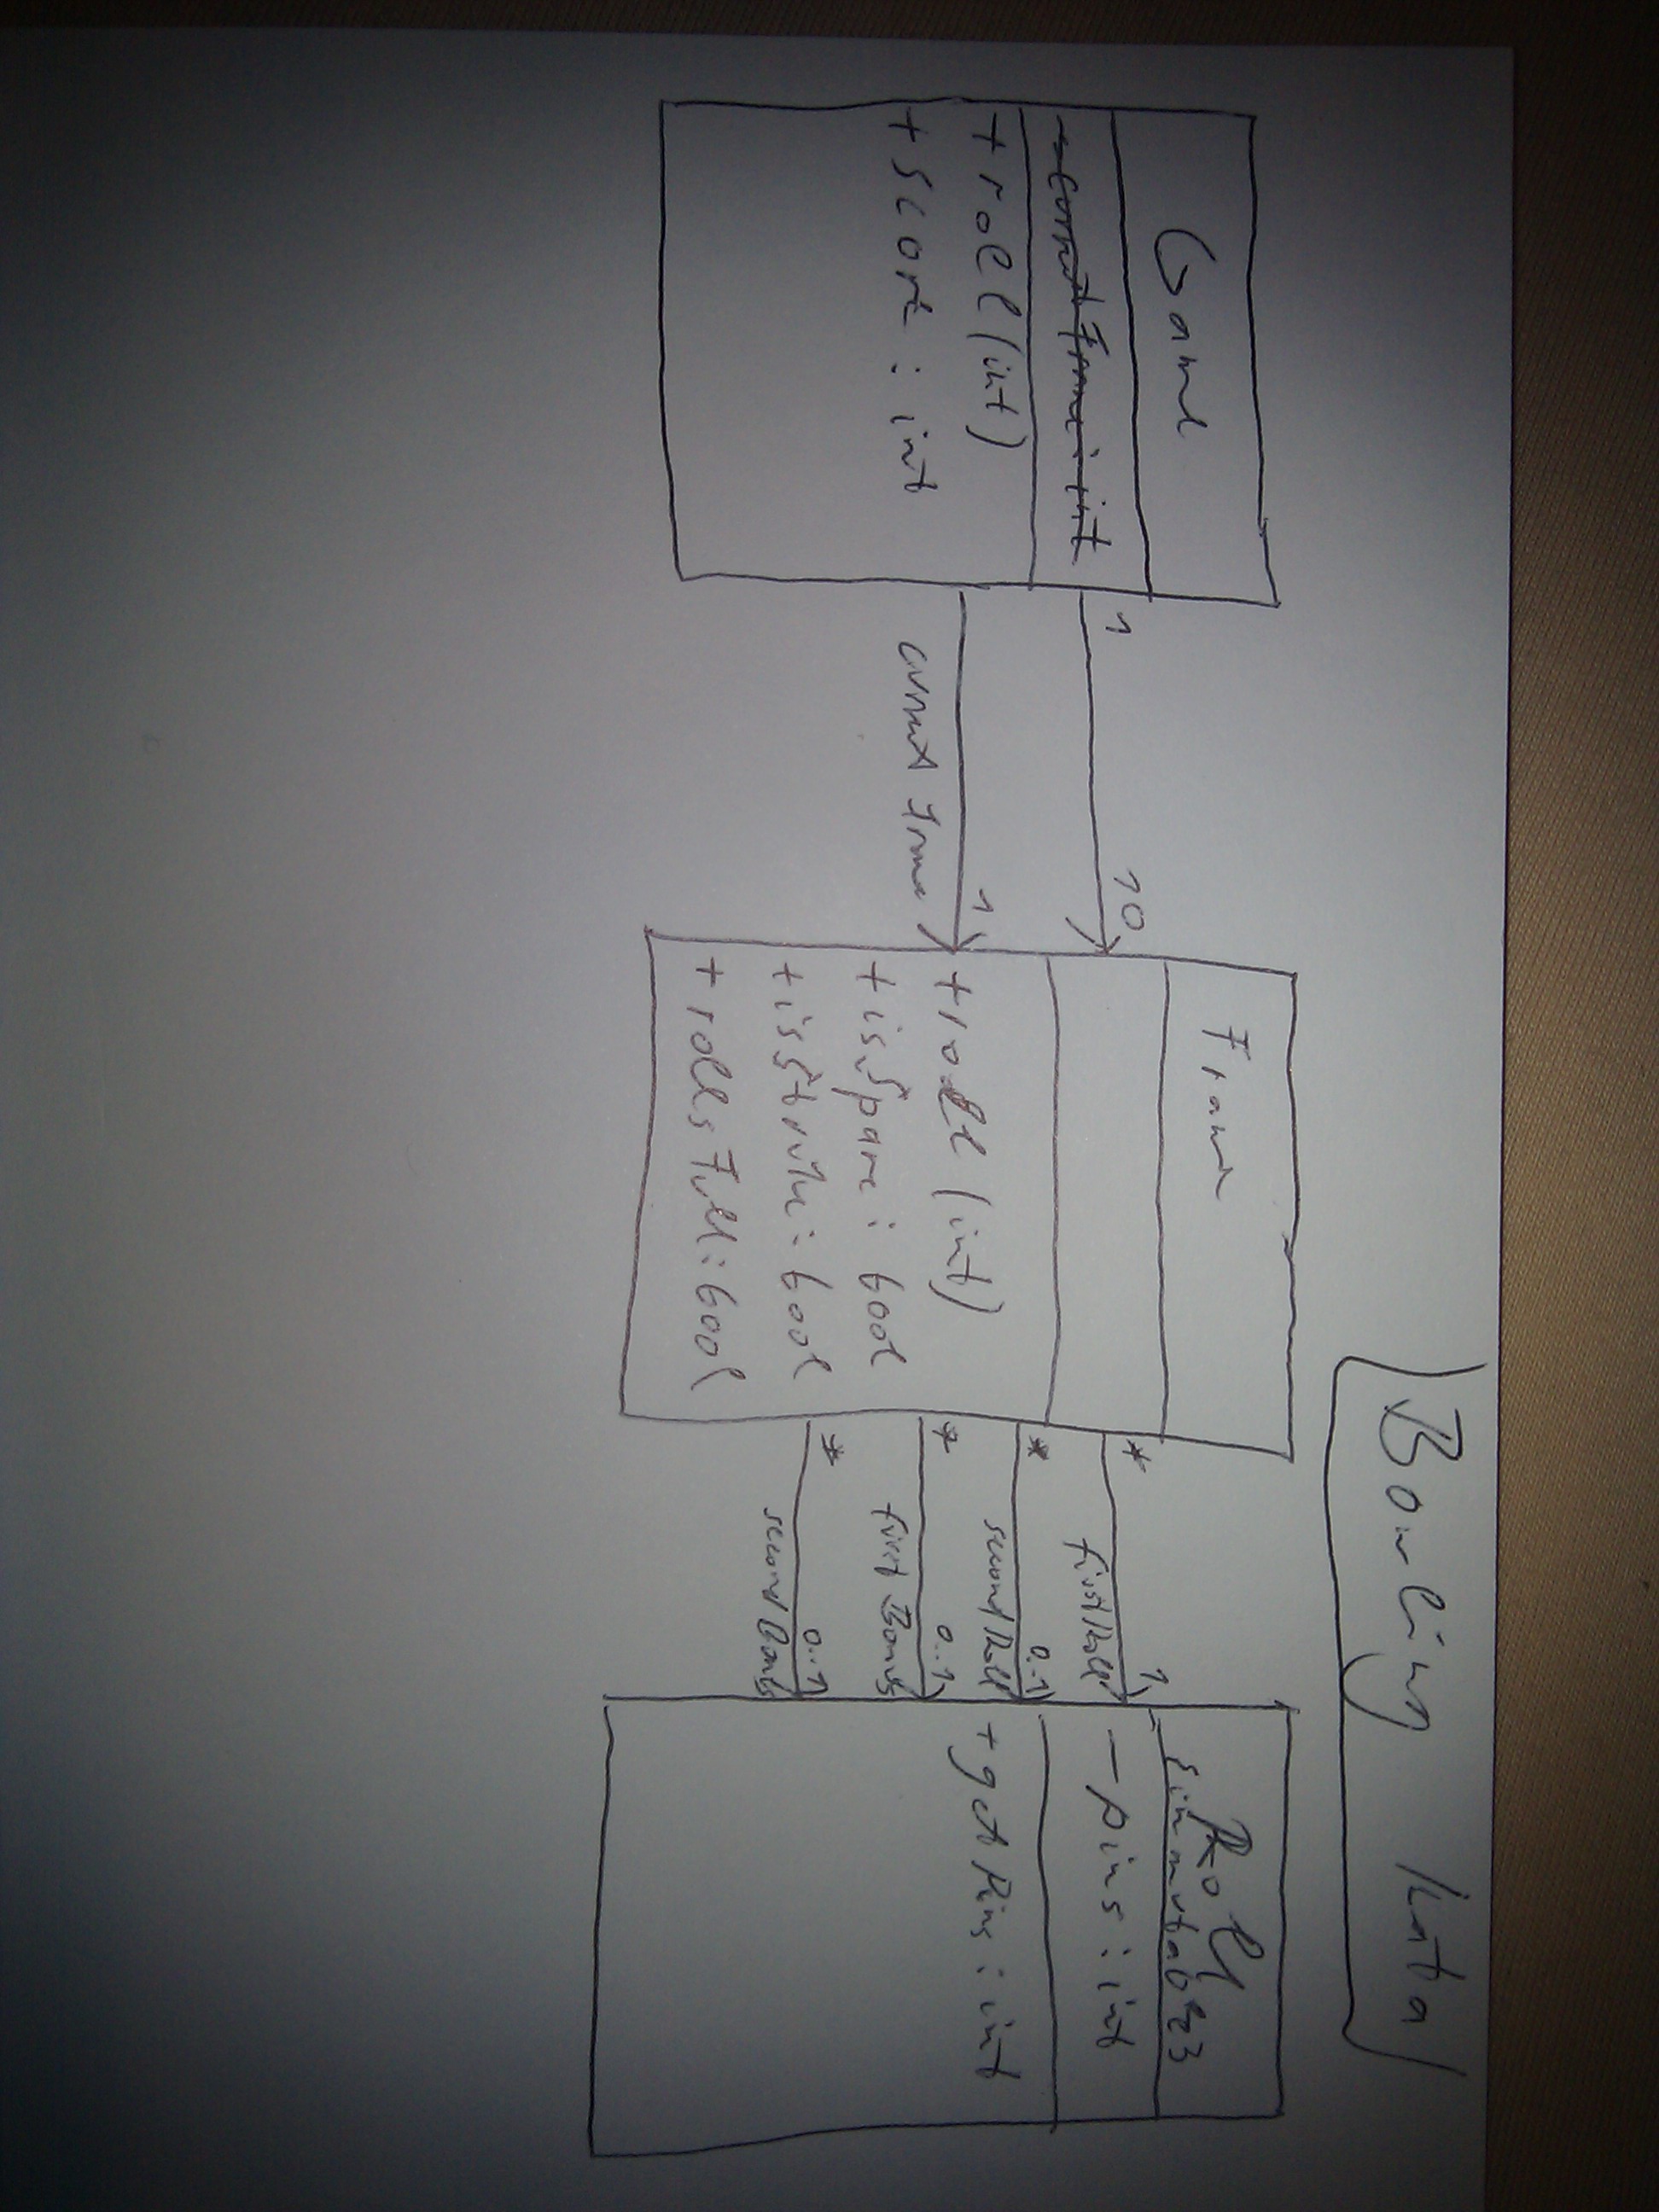 Bowling Kata
Game
- currentFrame : int
+ roll (int)
+ score : int
1
10
1
current Frame
Frame
+ roll (int)
+ isSpare : bool
+ isStrike : bool
+ rollsFull : bool
*
firstRoll
1
*
secondRoll
0..1
*
first Bonus
0..1
*
second Bonus
0..1
Roll
{immutable}
- pins : int
+ getPins : int